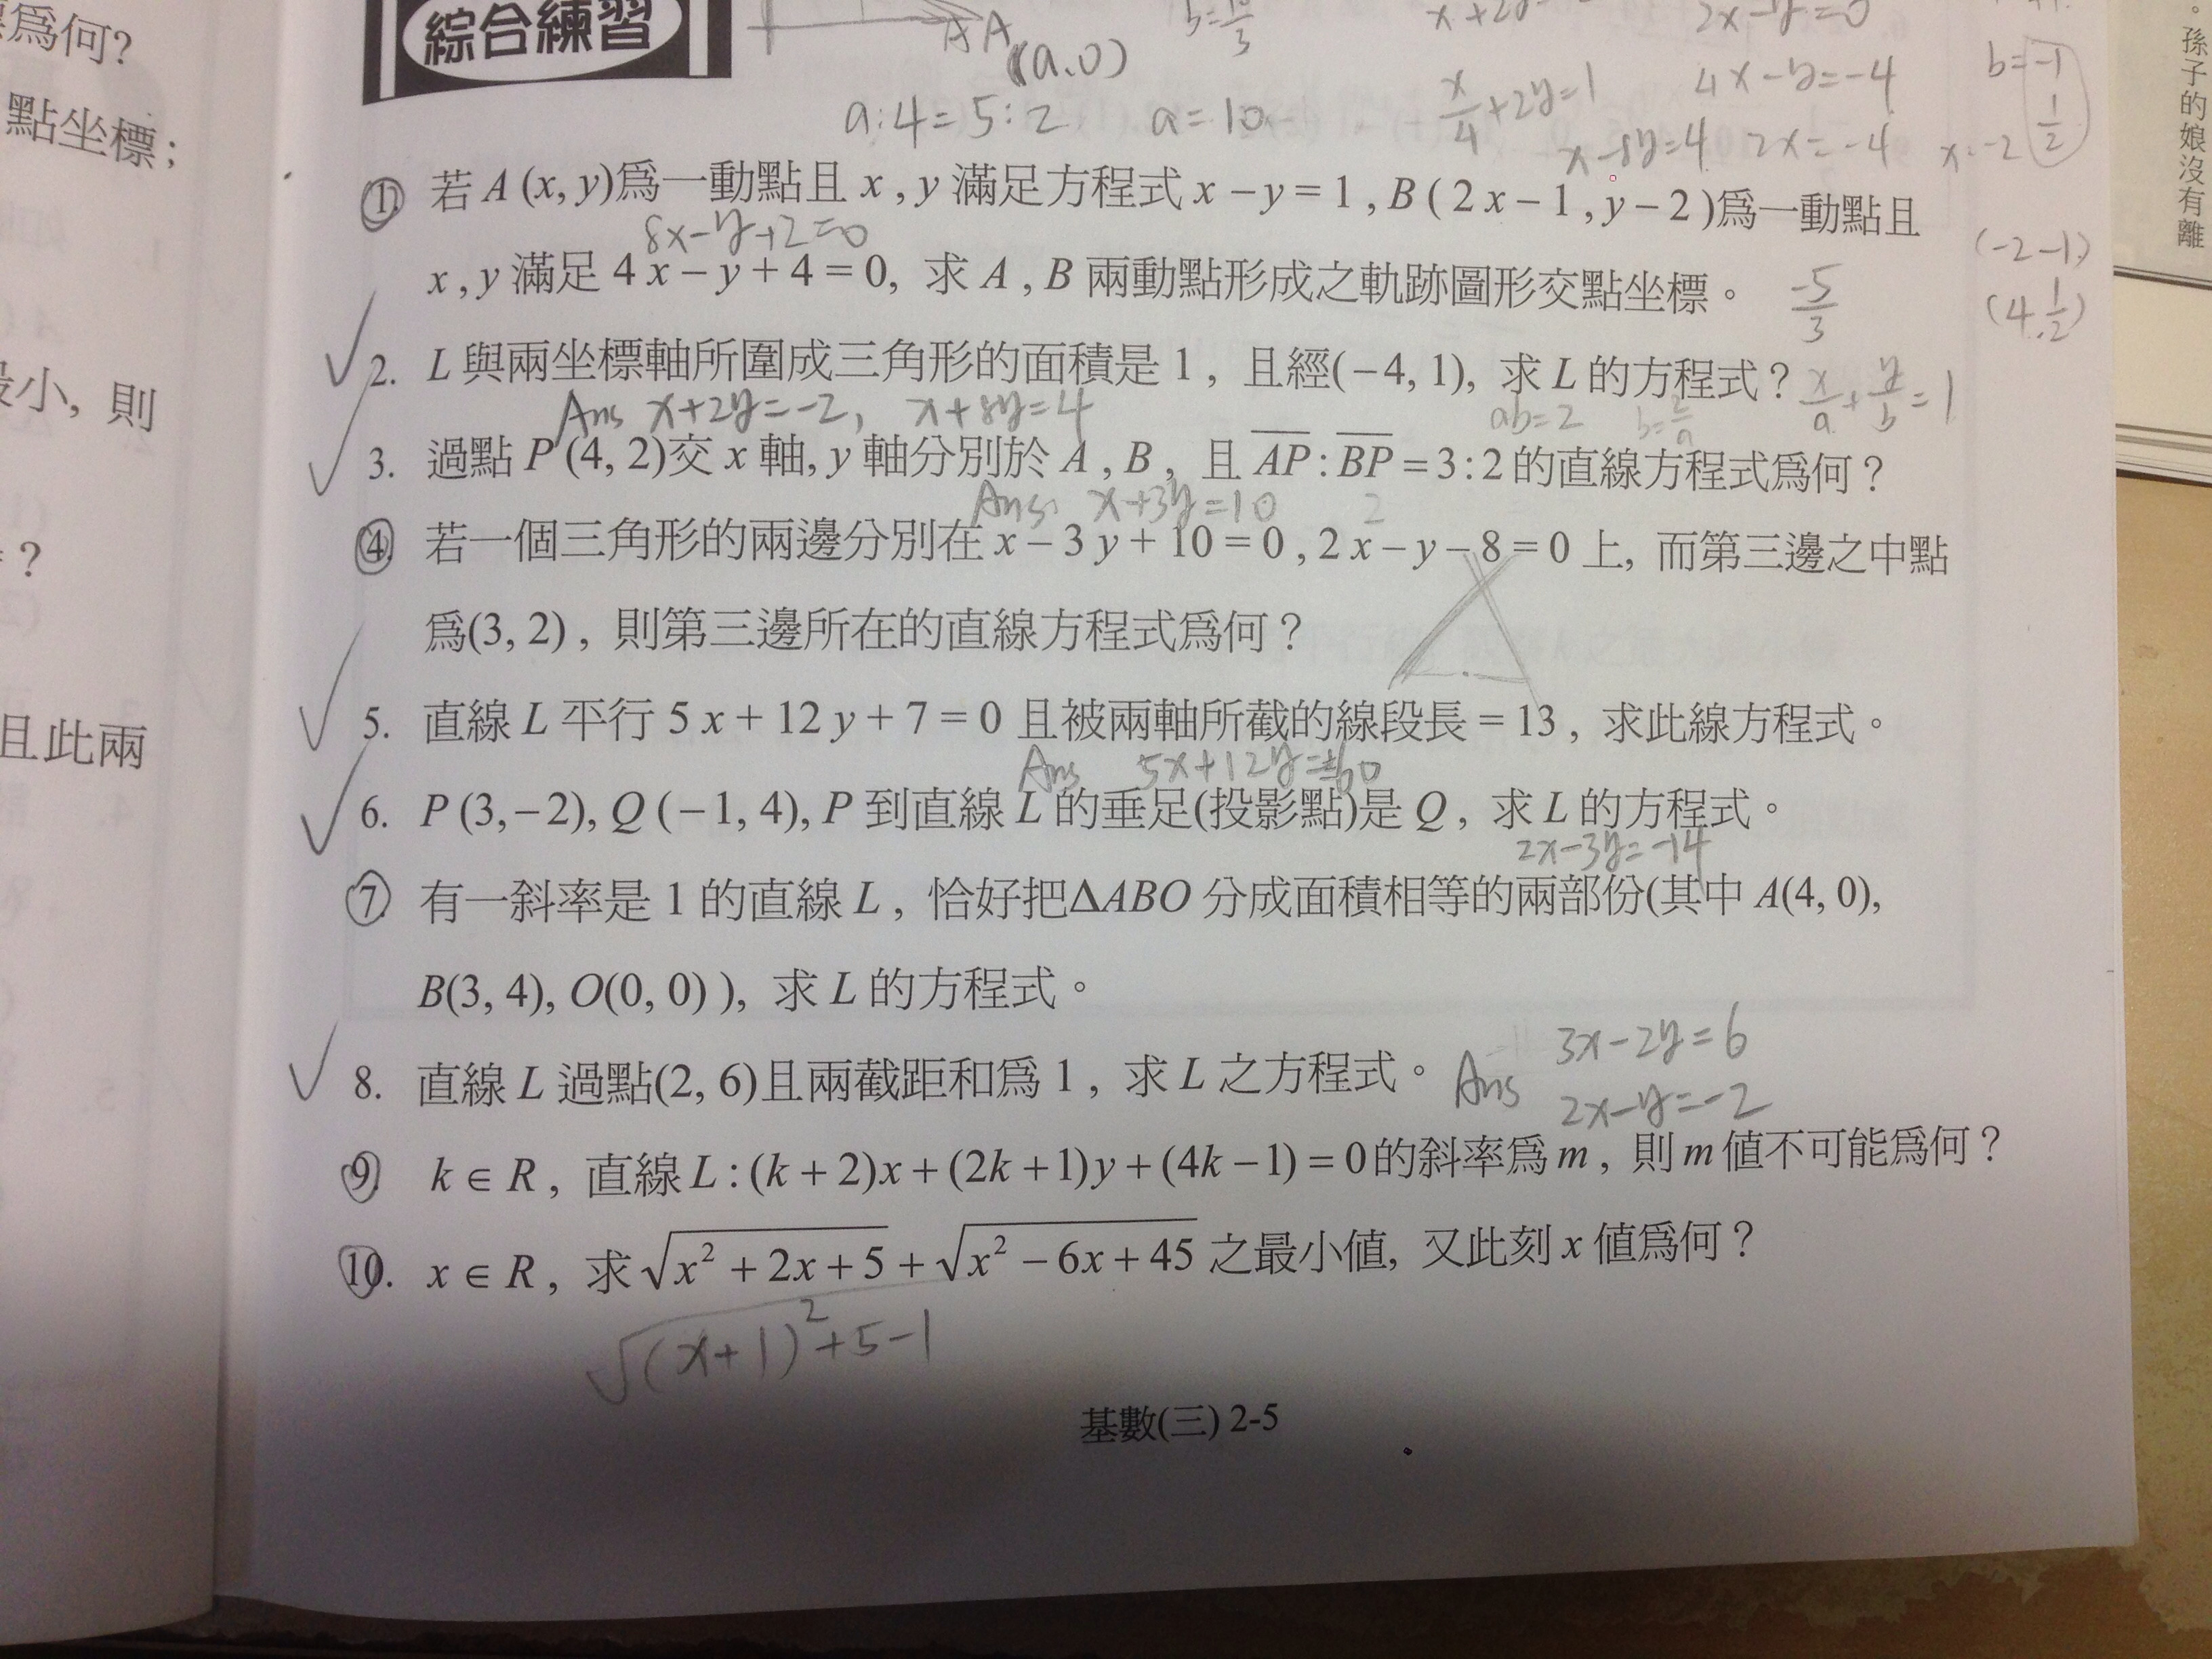 爲何?
點坐標；
最小, 則
?
且此兩
綜合練習
A A
(a.0)
a:4=5:2 a=10
x/4+2y=1
x-8y=4
2x-y=0
4x-y=-4
2x=-4
x=-2
b=-1
1/2
(-2-1)
(4,1/2)
。孫子的娘沒有離
1. 若A(x, y)爲一動點且 x , y 滿足方程式 x－y = 1 , B ( 2 x－1 , y－2 )爲一動點且
8x-y+2=0
x , y 滿足 4 x－y + 4 = 0, 求 A , B 兩動點形成之軌跡圖形交點坐標。
-5/3
2. L 與兩坐標軸所圍成三角形的面積是 1 , 且經(－4, 1), 求 L 的方程式？
x/a+y/b=1
Ans x+2y=-2, x+8y=4
ab=2 b=2/a
3. 過點 P (4, 2)交 x 軸, y 軸分別於 A , B , 且 AP : BP = 3 : 2 的直線方程式爲何？
Ans. x+3y=10
4. 若一個三角形的兩邊分別在 x－3 y + 10 = 0 , 2 x－y－8 = 0 上, 而第三邊之中點
爲(3, 2) , 則第三邊所在的直線方程式爲何？
5. 直線 L 平行 5 x + 12 y + 7 = 0 且被兩軸所截的線段長 = 13 , 求此線方程式。
Ans 5x+12y=±60
6. P (3,－2), Q (－1, 4), P 到直線 L 的垂足(投影點)是 Q , 求 L 的方程式。
2x-3y=-14
7. 有一斜率是 1 的直線 L , 恰好把ΔABO 分成面積相等的兩部份(其中 A(4, 0),
B(3, 4), O(0, 0) ), 求 L 的方程式。
8. 直線 L 過點(2, 6)且兩截距和爲 1 , 求 L 之方程式。
Ans 3x-2y=6
2x-y=-2
9. k ∈ R , 直線 L : (k + 2)x + (2k + 1)y + (4k − 1) = 0 的斜率爲 m , 則 m 值不可能爲何？
10. x ∈ R , 求 √(x² + 2x + 5) + √(x² − 6x + 45) 之最小値, 又此刻 x 值爲何？
√(x+1)²+5-1
基數(三) 2-5